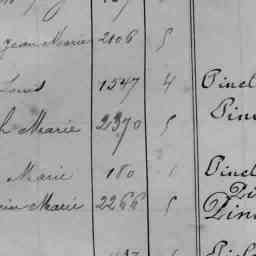 Jean Marie 2106 5
Louis 1547 4 Pinel
h Marie 2370 5 Pin
Marie 180 1 Pinel
Pi
in Marie 2266 5 Pin